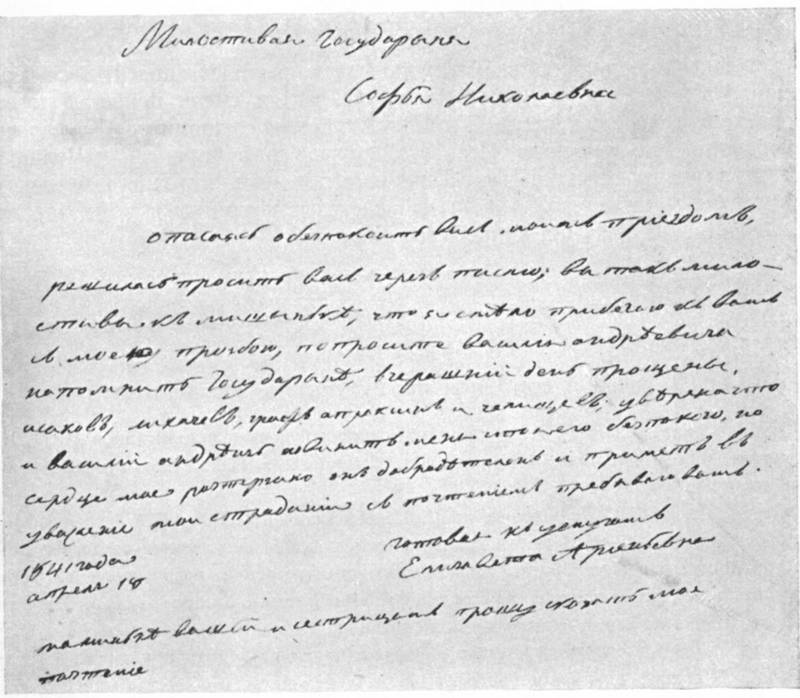 Милостивая Государыня
Софья Николаевна
опасаясь обезпокоить васъ моимъ приездомъ,
решилась просить васъ черезъ писмо; вы такъ мило-
стивы къ мишынькѣ, что я смѣло прибегаю къ вамъ
с моею прозбою, попросите василия андрѣевича
напомнить Государынѣ, вчерашний день прощены,
исаковъ, лихачевъ, графъ апраксинъ и челищевъ; увѣрена что
и василий андрѣичь меня что его безпокою, но
сердце мое растерзано онъ добродѣтеленъ и приметъ въ
уважение мои страдании с почтениемъ пребываю вамъ.
готовая къ услугамъ
Елизавета Арсеньевна
1841 года
апреля 18
маминькѣ вашей и сестрицамъ прошу сказать мое
почтение